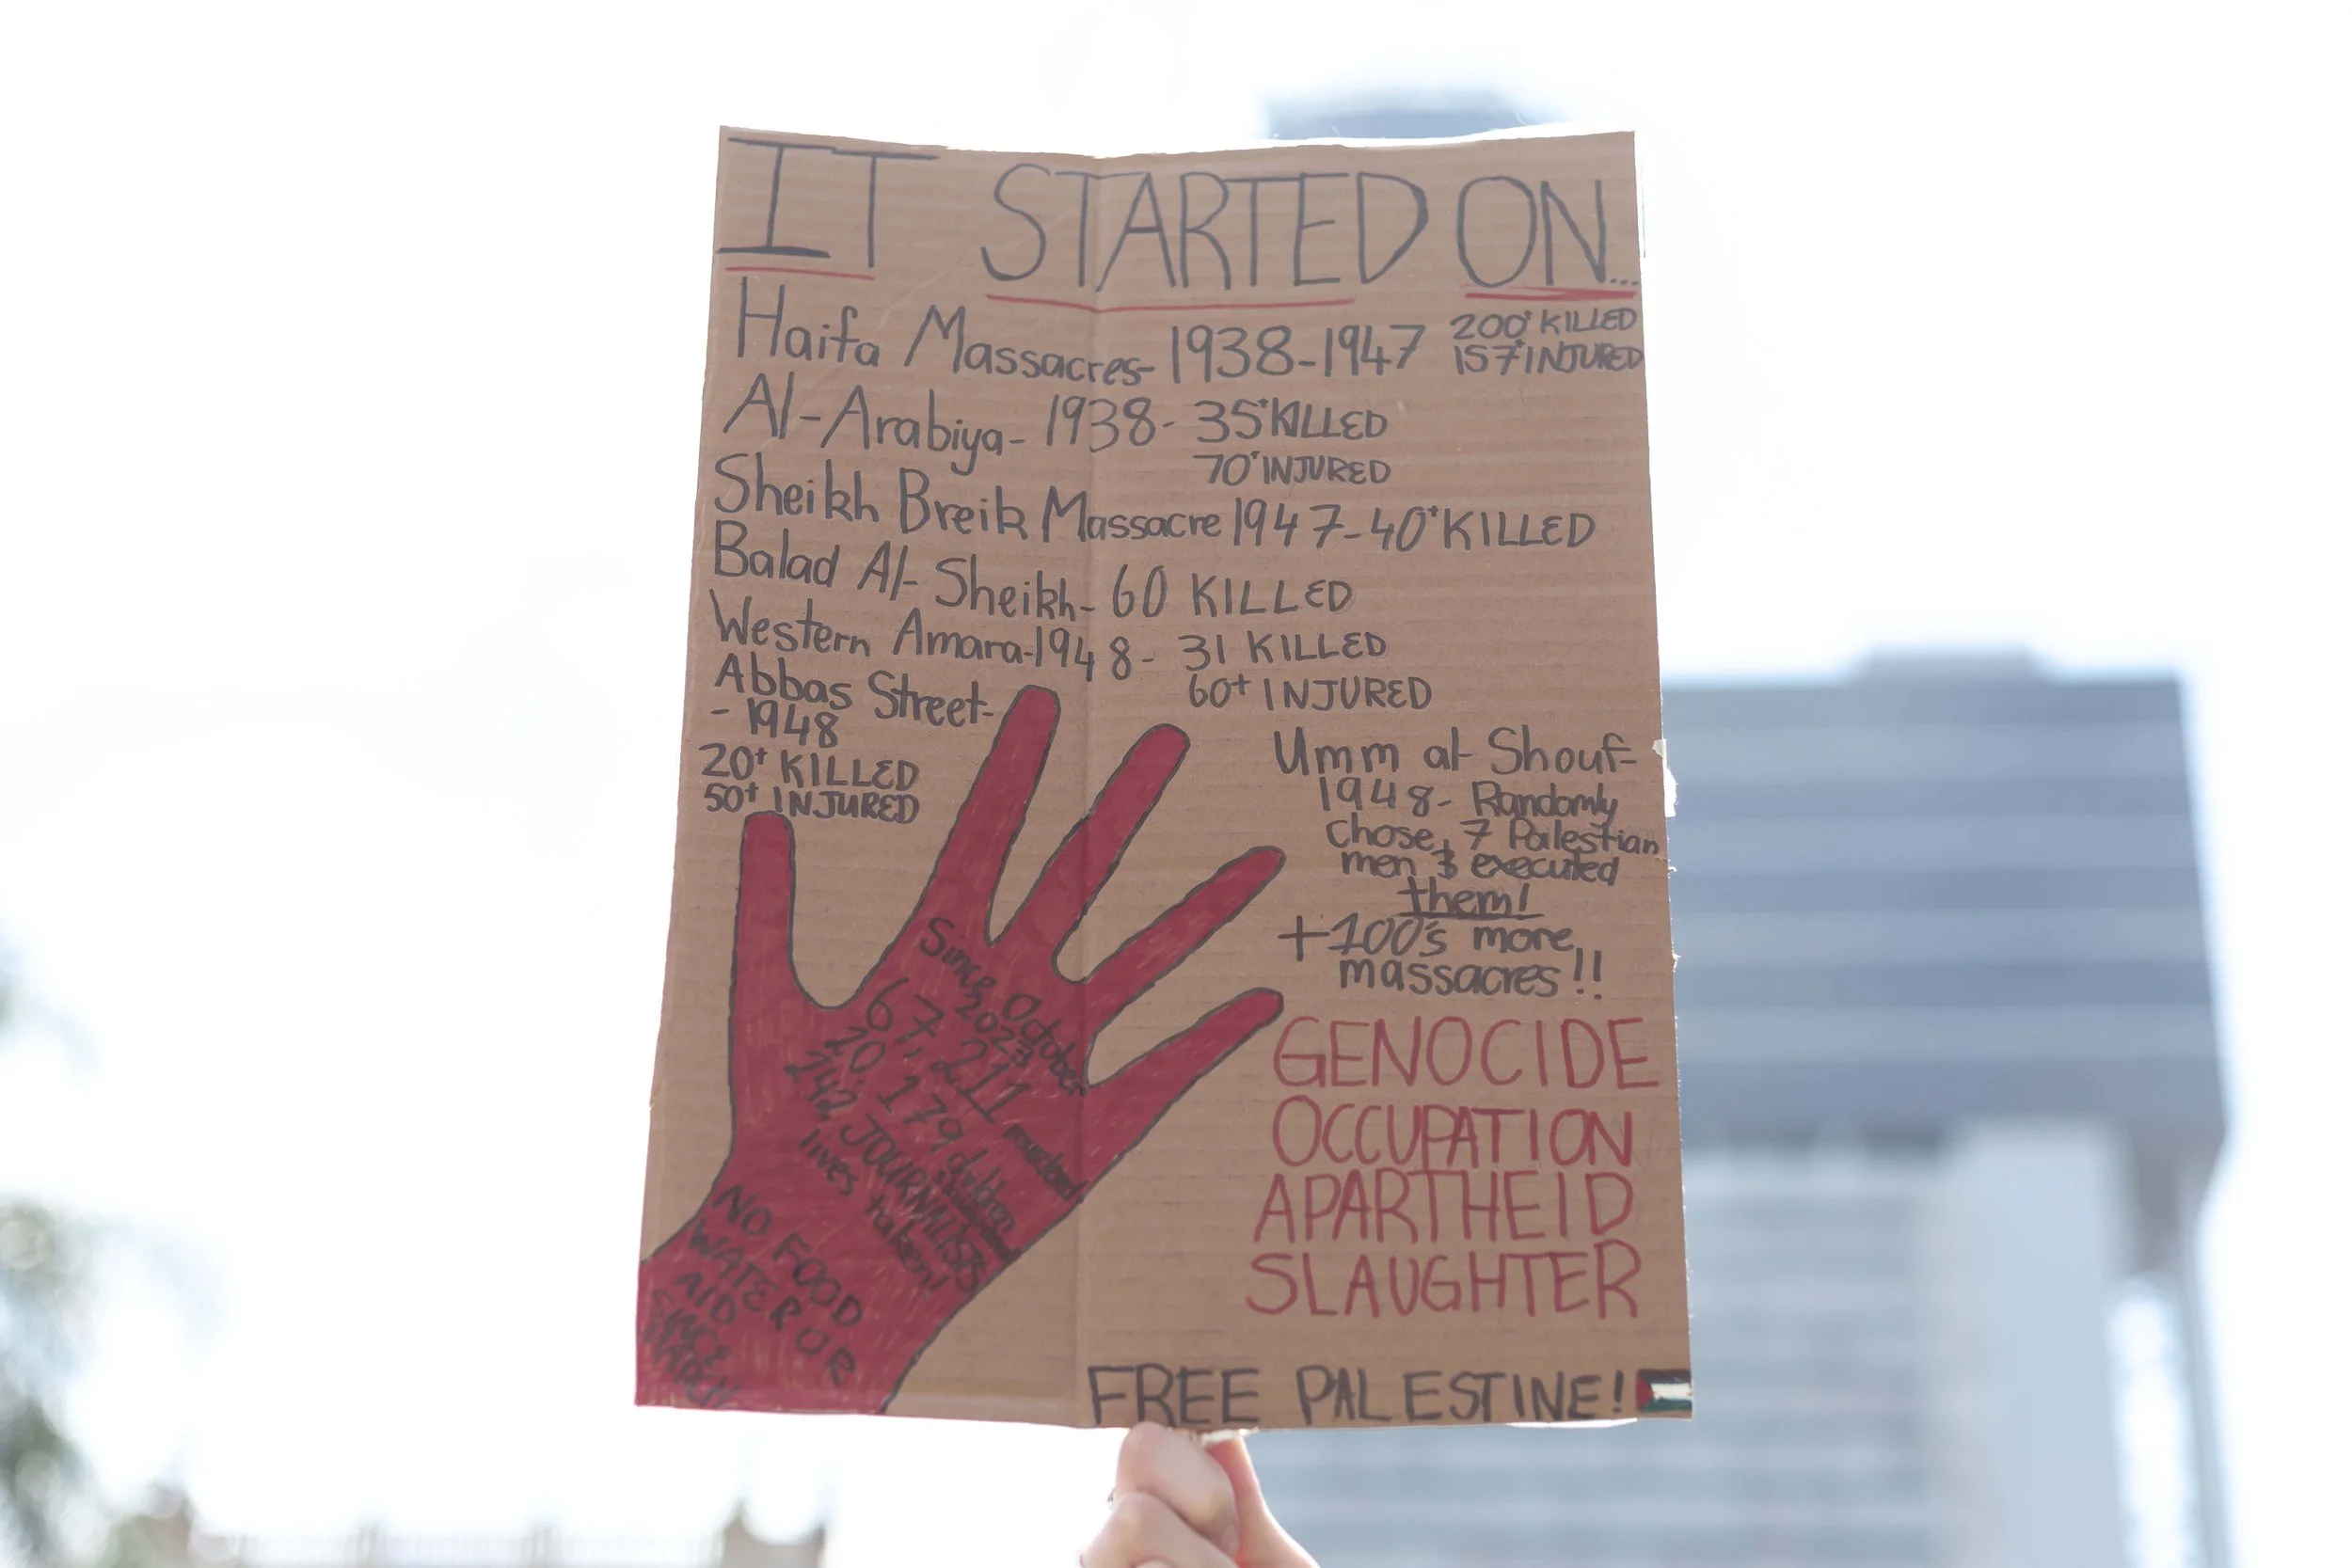 IT STARTED ON...
Haifa Massacres- 1938-1947 200+ KILLED
157+ INJURED
Al-Arabiya- 1938- 35+ KILLED
70+ INJURED
Sheikh Breik Massacre 1947-40+ KILLED
Balad Al-Sheikh- 60 KILLED
Western Amara-1948- 31 KILLED
60+ INJURED
Abbas Street-
- 1948
20+ KILLED
50+ INJURED
Umm al-Shouf-
1948- Randomly
chose, 7 Palestian
men & executed
them!
+100's more
massacres!!
Since October
2023
67,211
20,179 children
242 JOURNALISTS
lives taken!
NO FOOD
WATER OR
AID
GENOCIDE
OCCUPATION
APARTHEID
SLAUGHTER
FREE PALESTINE!